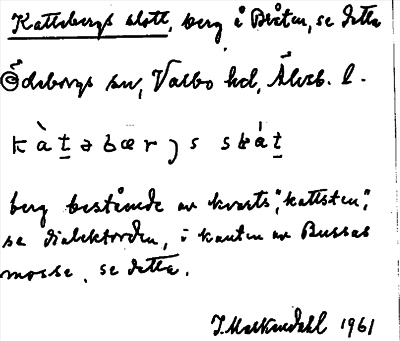 Kattebergs slott, berg å Bråten, se detta
Ödeborgs sn, Valbo hd, Älvsb. l.
kàt̲əbærjs sɫåt̲
berg bestående av kvarts, "kattsten",
se dialektorden, i kanten av Bussas
mosse, se detta.
1961